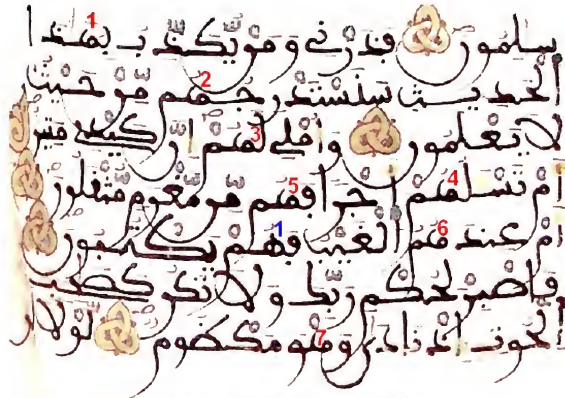 سلمون فذرني ومن يكذب بهذا 1
الحديث سنستدرجهم 2 من حيث
لا يعلمون وأملي لهم 3 إن كيدي متين
أم تسلهم 4 أجرا فهم 5 من مغرم مثقلون
أم عندهم 6 الغيب فهم 1 يكتبون
فاصبر لحكم ربك ولا تكن كصحب
الحوت إذ نادى وهو 7 مكظوم لولا أن